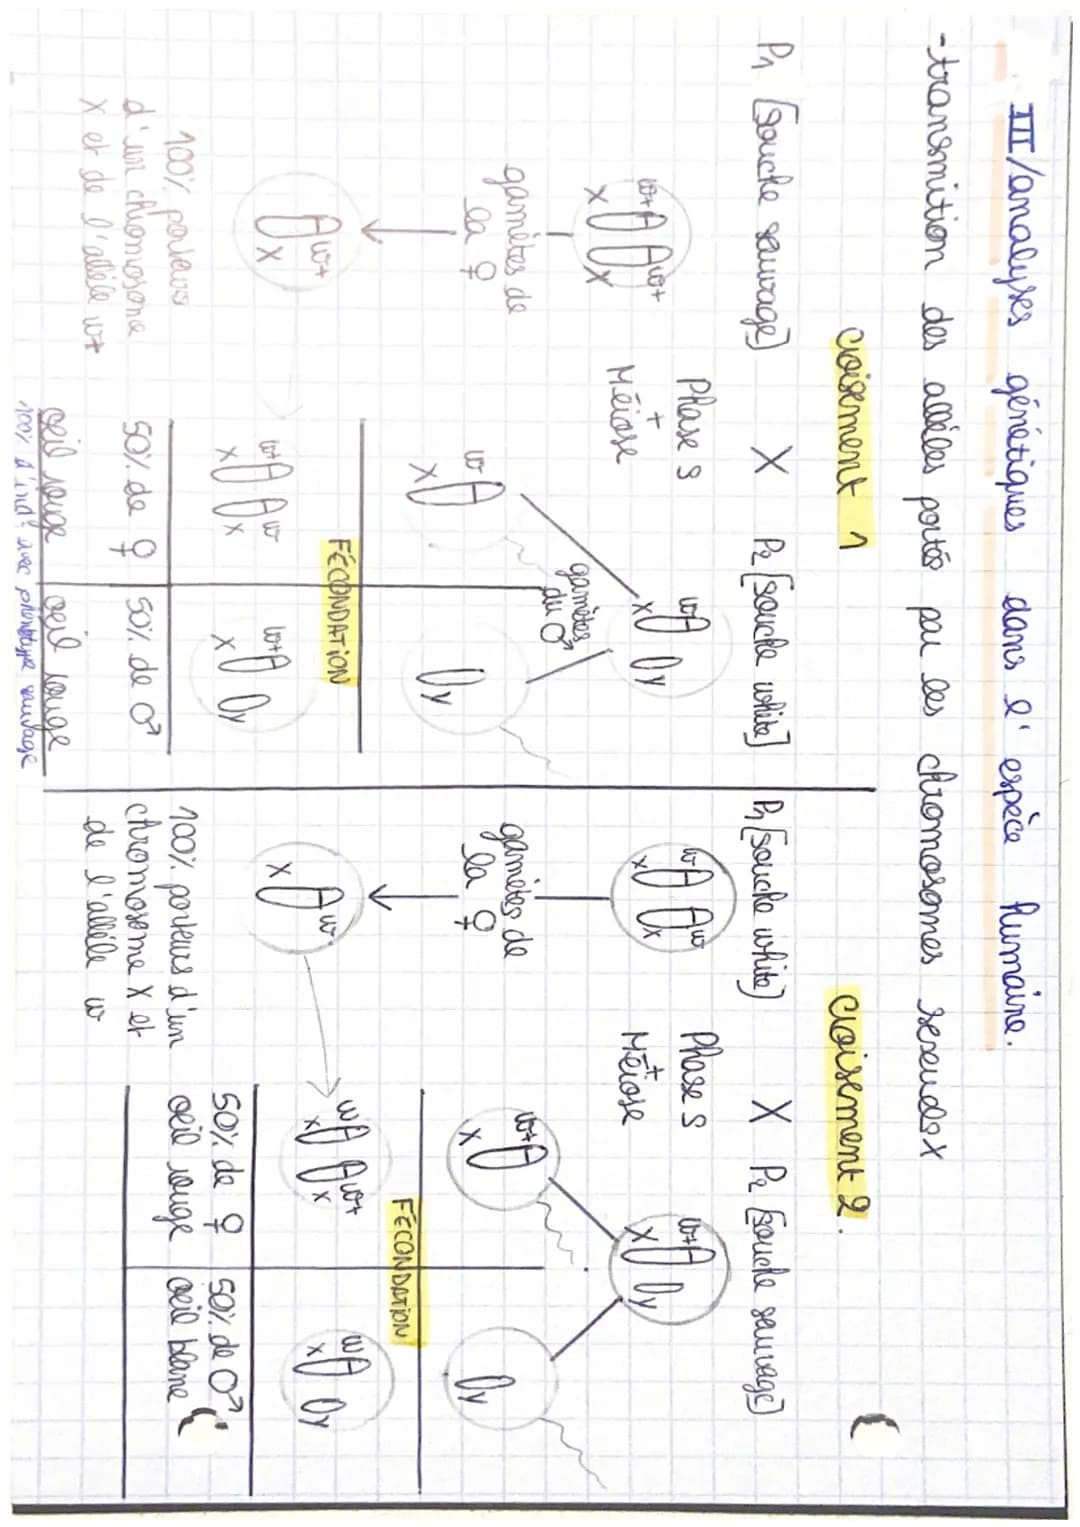 III/analyses génétiques dans l'espèce humaine.
-transmition des allèles portés par les chromosomes sexuels X
croisement 1
P1 [souche sauvage] X P2 [souche white]
w+ w+
X X
Phase S
+
Méiose
w
X y
gamètes de
la ♀
gamètes
du ♂
w
X
y
w+
X
FÉCONDATION
w+ w
X X
w+
X y
100% porteurs
d'un chromosome
X et de l'allèle w+
50% de ♀
50% de ♂
oeil rouge
oeil rouge
100% d'ind. avec phénotype sauvage
croisement 2.
P1 [souche white] X P2 [souche sauvage]
w w
X X
Phase S
+
Méiose
w+
X y
gamètes de
la ♀
w+
X
y
w
X
FÉCONDATION
w w+
X X
w
X y
100% porteurs d'un
chromosome X et
de l'allèle w
50% de ♀
oeil rouge
50% de ♂
oeil blanc